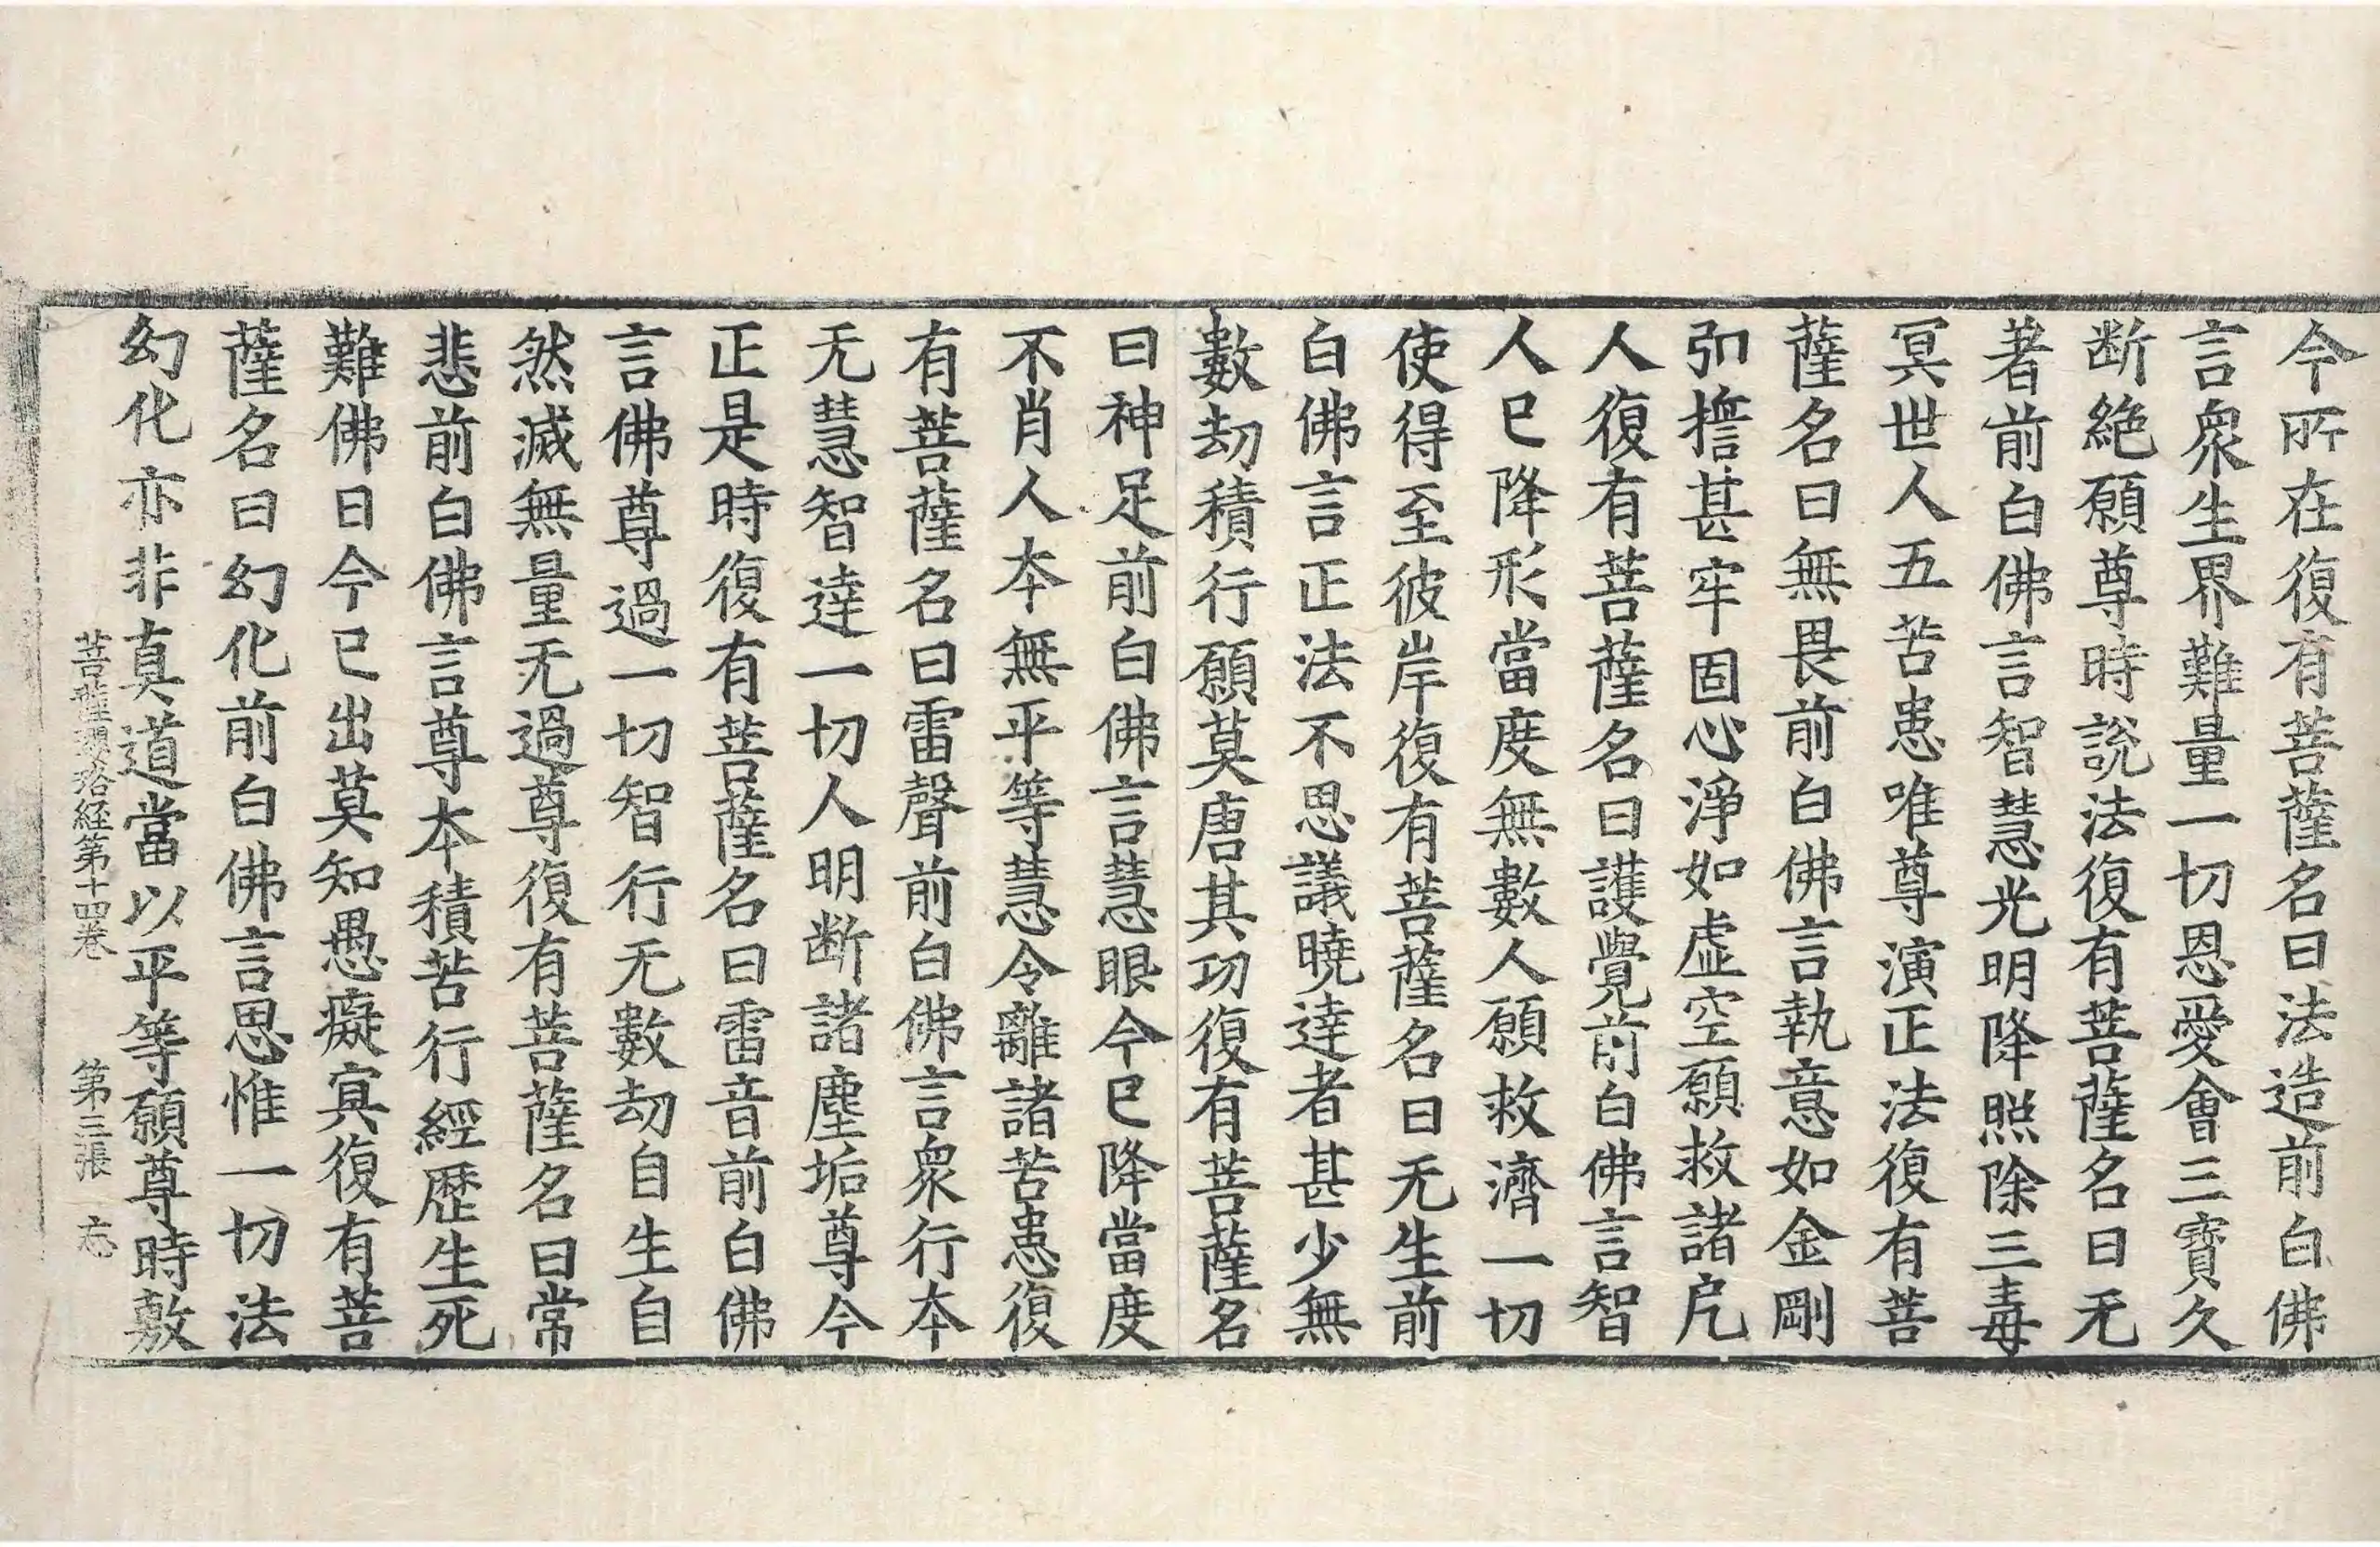 今所在復有菩薩名曰法造前白佛
言衆生界難量一切恩愛會三寶久
断絶願尊時說法復有菩薩名曰无
著前白佛言智慧光明降照除三毒
冥世人五苦患唯尊演正法復有菩
薩名曰無畏前白佛言執意如金剛
弘擔甚牢固心淨如虛空願救諸凡
人復有菩薩名曰護覺前白佛言智
人已降形當度無數人願救濟一切
使得至彼岸復有菩薩名曰无生前
白佛言正法不思議曉達者甚少無
數劫積行願莫唐其功復有菩薩名
曰神足前白佛言慧眼今已降當度
不肖人本無平等慧令離諸苦患復
有菩薩名曰雷聲前白佛言衆行本
无慧智達一切人明断諸塵垢尊今
正是時復有菩薩名曰雷音前白佛
言佛尊過一切智行无數劫自生自
然滅無量无過尊復有菩薩名曰常
悲前白佛言尊本積苦行經歷生死
難佛日今已出莫知愚癡冥復有菩
薩名曰幻化前白佛言思惟一切法
幻化亦非真道當以平等願尊時敷
菩薩瓔珞経第十四巻　第三張　忘